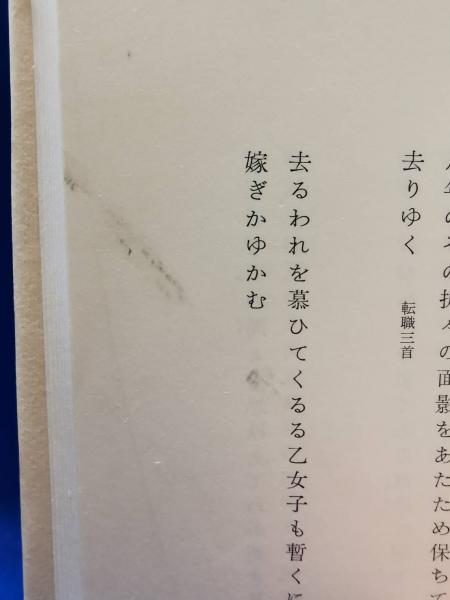 その折々の面影をあたため保ちて
去りゆく 転職三首
去るわれを慕ひてくるる乙女子も暫くに
嫁ぎかゆかむ